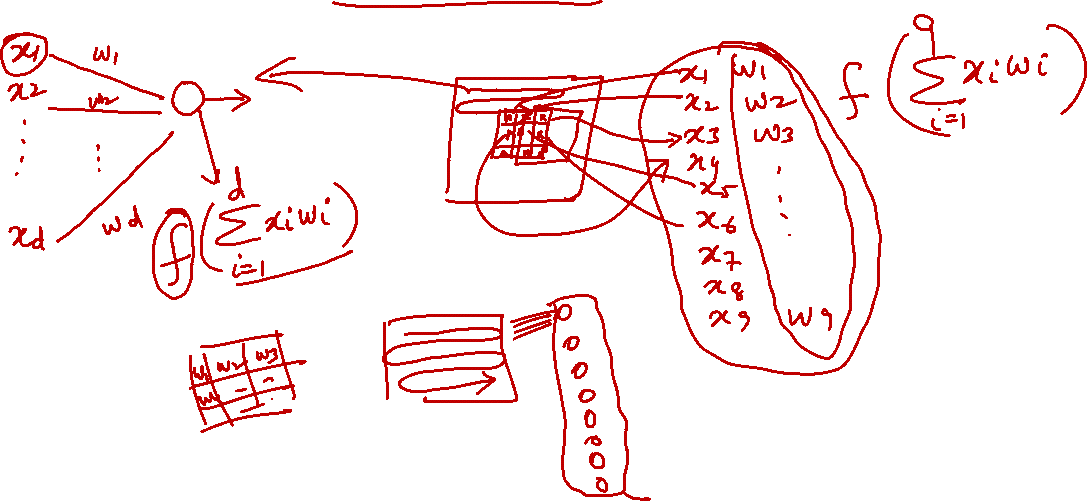 x1 w1
x2 w2
⋮ ⋮
xd wd
f ( d ∑ i=1 xi wi )
x1 w1
x2 w2
x3 w3
x4
x5
x6
x7
x8
x9 w9
f ( 9 ∑ i=1 xi wi )
w1 w2 w3